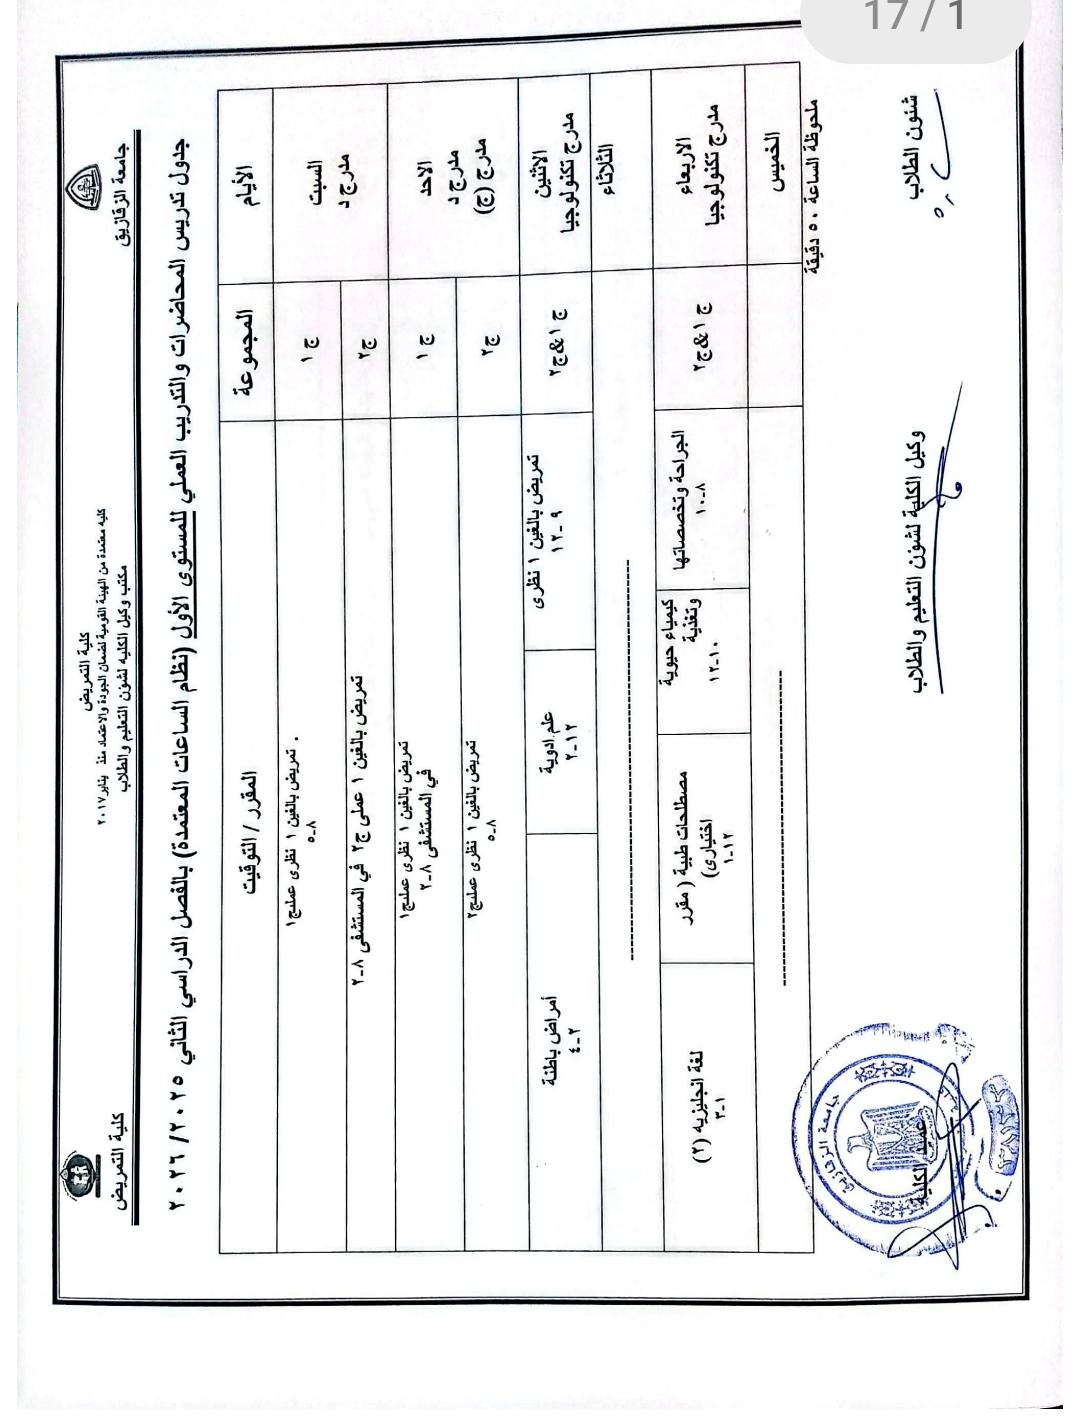 17 / 1
جامعة الزقازيق
كلية التمريض
كلية معتمدة من الهيئة القومية لضمان الجودة والاعتماد منذ يناير ٢٠١٧
مكتب وكيل الكلية لشئون التعليم والطلاب
كلية التمريض
جدول تدريس المحاضرات والتدريب العملي للمستوى الأول (نظام الساعات المعتمدة) بالفصل الدراسي الثاني ٢٠٢٥ / ٢٠٢٦
الأيام المجموعة المقرر / التوقيت
السبت
مدرج د
ج ١
تمريض بالغين ١ نظرى عمليج١ .
٨-٥
ج٢
تمريض بالغين ١ عملى ج٢ في المستشفى ٨-٢
الاحد
مدرج د
مدرج (ج)
ج ١
تمريض بالغين ١ نظرى عمليج١
في المستشفى ٨-٢
ج٢
تمريض بالغين ١ نظرى عمليج٢
٨-٥
الاثنين
مدرج تكنولوجيا
ج ١&ج٢
تمريض بالغين ١ نظرى
٩ -١٢
علم ادوية
١٢-٢
أمراض باطنة
٢-٤
الثلاثاء
--------------------------------
الاربعاء
مدرج تكنولوجيا
ج ١&ج٢
الجراحة وتخصصاتها
٨-١٠
كيمياء حيوية
وتغذية
١٠-١٢
مصطلحات طبية ( مقرر
اختيارى)
١٢-١
لغة انجليزيه (٢)
١-٣
الخميس
--------------------------------
ملحوظة الساعة ٥٠ دقيقة
شئون الطلاب
وكيل الكلية لشئون التعليم والطلاب
عميد الكلية
جامعة الزقازيق